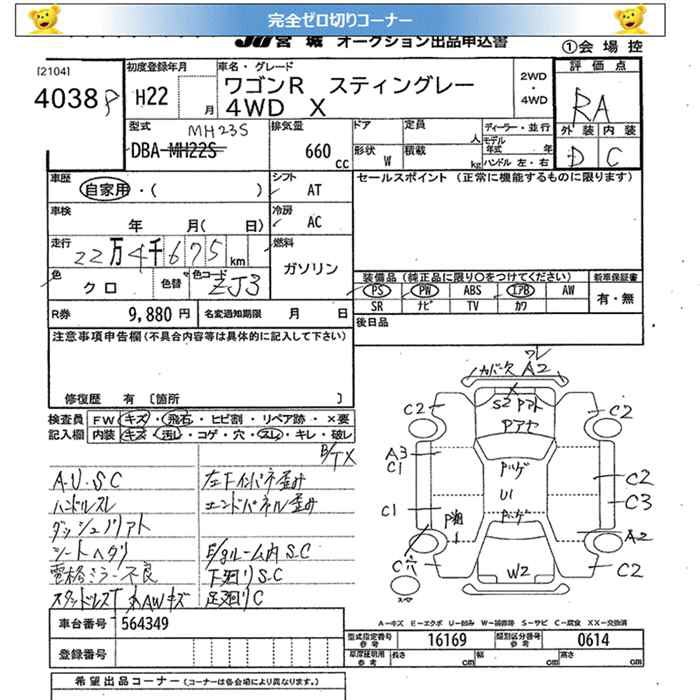 完全ゼロ切りコーナー
JU 宮城 オークション出品申込書
①会場控
[2104]
4038
初度登録年月
H22 月
車名・グレード
ワゴンR スティングレー
4WD X
2WD
・
4WD
評価点
RA
外装 内装
D C
型式
MH23S
DBA-MH22S
排気量
660 cc
ドア 定員 人
形状 W 積載 kg
ディーラー・並行
モデル年式 年
ハンドル 左・右
車歴
自家用・( )
シフト
AT
セールスポイント (正常に機能するものに限ります)
車検
年 月( 日)
冷房
AC
走行
22万4千675km
燃料
ガソリン
色
クロ
色替
色コード
ZJ3
装備品 (純正品に限り○をつけてください)
新車保証書
PS PW ABS エアB AW
有・無
SR ナビ TV カワ
R券
9,880円
名変通知期限 月 日
後日品
注意事項申告欄(不具合内容等は具体的に記入して下さい)
修復歴 有 [箇所 ]
検査員
記入欄
FW キズ・飛石・ヒビ割・リペア跡・×要
内装 キズ・汚レ・コゲ・穴・スレ・キレ・破レ
A・U・SC
ハンドルスレ
シートヘタリ
電格ミラー不良
エンドパネル歪み
E/gルーム内S.C
下廻りS.C
足廻りC
A2
C2
C2
S2
A3
C1
C2
C3
C1
U1
A2
C穴
W2
C2
A-キズ E-エクボ U-凹み W-補修跡 S-サビ C-腐食 XX-交換済
車台番号
564349
型式指定番号
参考
16169
類別区分番号
参考
0614
登録番号
車庫証明用
参考
長さ cm 幅 cm 高さ cm
希望出品コーナー (コーナーは各会場により異なります。)